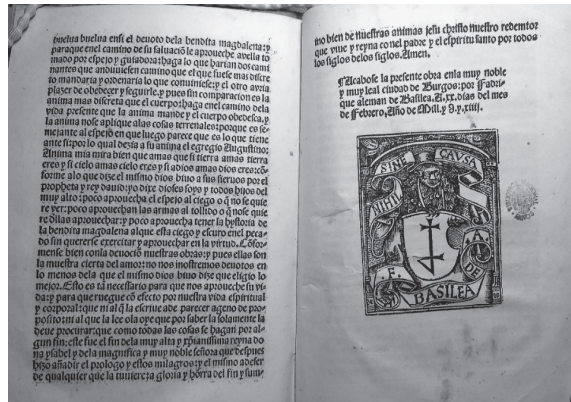 buelua buelua ensi el deuoto dela bendita magdalena: y
paraque enel camino de su saluacion le aproueche auella to
mado por espejo y guiadora: haga lo que harian dos cami
nantes que anduuiesen camino que el que fuese mas discre
to mandaria y ordenaria lo que conuiniese: y el otro auria
plazer de obedecer y seguirle. y pues sin comparacion es la
anima mas discreta que el cuerpo: haga enel camino dela
vida presente que la anima mande y el cuerpo obedesca. y
la anima nose aplique alas cosas terrenales: porque es se-
mejante al espejo en que luego parece que es lo que tiene
ante si: por lo qual dezia a su anima el egregio Augustino:
Anima mia mira bien que amas que si tierra amas tierra
eres y si cielo amas cielo eres y si adios amas dios eres: cō
forme alo que dize el mismo dios biuo a sus sieruos por el
propheta y rey dauid: yo dixe dioses soys y todos hijos del
muy alto: poco aprouecha el espejo al ciego o q̄ no se quie
re ver: poco aprouechan las armas al tollido o q̄ nose quie
re dellas aprouechar: y poco aprouecha tener la hystoria de
la bendita magdalena alque esta ciego y escuro enel peca-
do sin quererse exercitar y aprouechar en la virtud. Cōfor-
memonos bien conla deuocion nuestras obras: y pues ellas son
la muestra cierta del amor: no nos mostremos deuotos en
lo menos dela que el mismo dios biuo dize que eligio lo
mejor. Esto es tā necessario para que nos aproueche su vi-
da: y para que ruegue cō efecto por nuestra vida espiritual
y corporal: que ni al q̄ la escriue ade parecer ageno de pro-
posito: ni al que la lee o la oye que por saber la solamente la
deue procurar: que como todas las cosas se hagan por al-
gun fin: este fue el fin dela muy alta y xp̄ianissima reyna do
na ysabel y dela magnifica y muy noble señora que despues
hizo añadir el prologo y estos milagros: y el mismo a de ser
de qualquier que la tuuiere: a gloria y hōrra del fin y sum-
mo bien de nuestras animas jesu christo nuestro redemtor
que viue y reyna con el padre y el espiritu santo por todos
los siglos delos siglos. Amen.
Acabose la presente obra enla muy noble
y muy leal ciudad de Burgos: por Fadri-
que aleman de Basilea. A .xx. dias del mes
de Febrero, Año de Mill. y
SINE CAVSA
NIHIL
F. A. DE
BASILEA